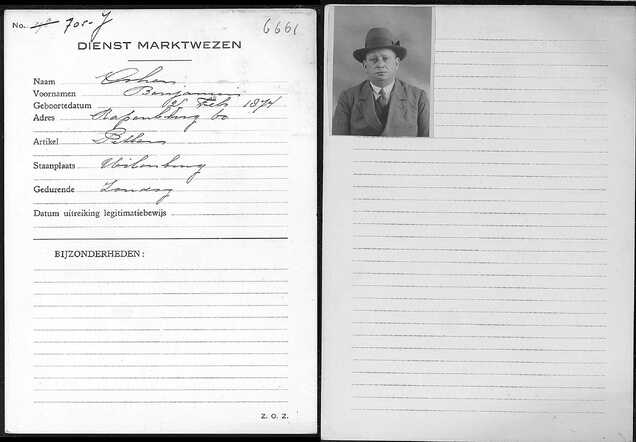 No. 705-J
6661
DIENST MARKTWEZEN
Naam Cohen
Voornamen Benjamin
Geboortedatum Feb 1874
Adres Rapenburg 60
Artikel
Staanplaats Uilenburg
Gedurende Zondag
Datum uitreiking legitimatiebewijs
BIJZONDERHEDEN:
Z. O. Z.